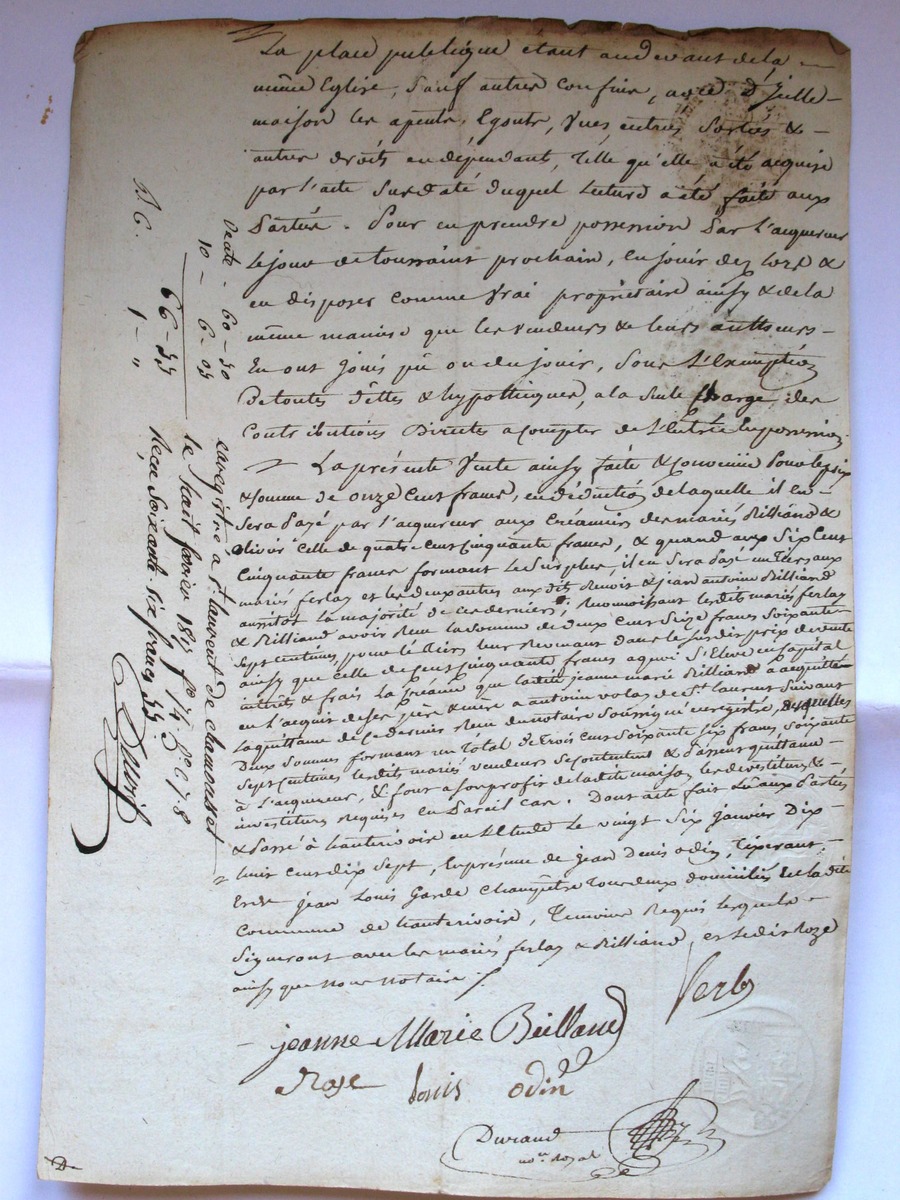 La place publique étant audevant de la
même Eglise, Sauf autres confins, avec d'Icelle
maison les apents, Egouts, Vues, entrées Sorties &
autres droits en dépendant, Telle qu'elle a été acquise
par l'acte Susdaté duquel Lecture a été faite aux
Parties. Pour en prendre possession Par l'acquereur
Le jour de toussaint prochain, En jouir dez Lors &
en disposer comme Vrai propriétaire ainsy & de la
même maniere que les Vendeurs & leurs autheurs
En ont jouis pû ou du jouir, Sous L'Exemption
De toutes dettes & hypothéques, a la Seule charge des
Contributions Directes a compter de L'Entrée En possession.
La présente Vente ainsy faite & Convenue Pour le prix
& Somme de onze Cent francs, en déduction de laquelle il en
Sera Payé par l'acquereur aux Créanciers des mariés Billiand &
olivier celle de quatre cent Cinquante francs, & quand aux Six Cent
Cinquante francs formant Le Surplus, il en Sera Payé un Tiers aux
mariés ferlay et les deux autres aux dits Benoit & jean antoine Billiand
aussitot La majorité de ces derniers; Reconnoissant les dits mariés ferlay
& Billiand avoir Reçu La Somme de deux Cent Seize francs Soixante
Sept centimes, pour le tiers leur Revenant dans le Susdit prix de vente
ainsy que celle de Cent Cinquante francs a quoi S'Eleve en Capital
intérêts & frais La Créance que ladite jeanne marie Billiand a acquittée
en L'acquit de ses père & mere a antoine volay de St Laurent Suivant
La quittance de ce dernier Reçue du notaire Soussigné enregistrée, desquelles
Deux Sommes formant un Total de Trois Cent Soixante Six francs, Soixante
Sept Centimes les dits mariés vendeurs Se Contentent & Passent quittance
à L'acquereur, & font a Son profit de la dite maison les devestitures &
investitures Requises en Pareil Cas. Dont acte fait Lu aux Parties
& Passé à hauterivoire en L'Etude Le vingt Six janvier Dix
huit cent dix Sept, En présence de jean Denis odin, Tisserant,
Et de jean Louis Garde Champêtre Tous deux domiciliés de La dite
Commune de hauterivoire, Temoins Requis lesquels
Signeront avec les mariés ferlay & Billiand, et Ledit Roze
ainsy que nous notaire ./.
ferlay
jeanne Marie Billiand
Roze Louis odin
Durand
nore Royal
Vente - 60 - 50
10 - 6 - 05
66 - 55
D. C. 1 - "
enregistré a St laurent de chamousset
le huit fevrier 1817 fo 74 Ro C 7 & 8
Reçu Soixante-six francs 55.